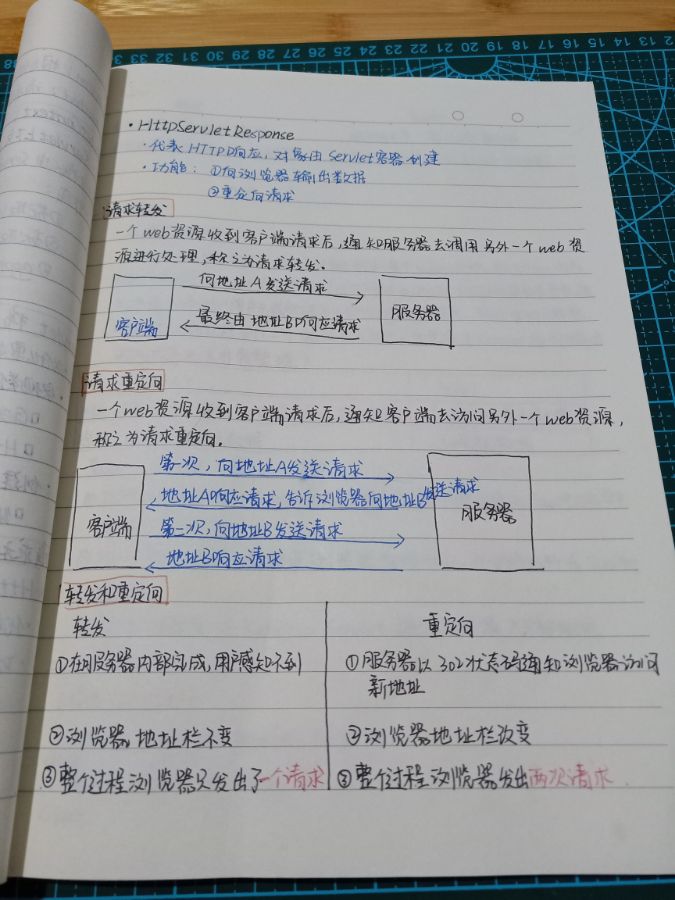 ·HttpServletResponse
·代表HTTP响应，对象由Servlet容器创建
·功能：①向浏览器输出数据
②重定向请求
请求转发
一个web资源收到客户端请求后，通知服务器去调用另外一个web资
源进行处理，称之为请求转发。
向地址A发送请求
客户端
服务器
最终由地址B响应请求
请求重定向
一个web资源收到客户端请求后，通知客户端去访问另外一个web资源，
称之为请求重定向。
第一次，向地址A发送请求
地址A响应请求，告诉浏览器向地址B发送请求
客户端
服务器
第二次，向地址B发送请求
地址B响应请求
转发和重定向
转发
重定向
①在服务器内部完成，用户感知不到
①服务器以302状态码通知浏览器访问
新地址
②浏览器地址栏不变
②浏览器地址栏改变
③整个过程浏览器只发出了一个请求
③整个过程浏览器发出两次请求.